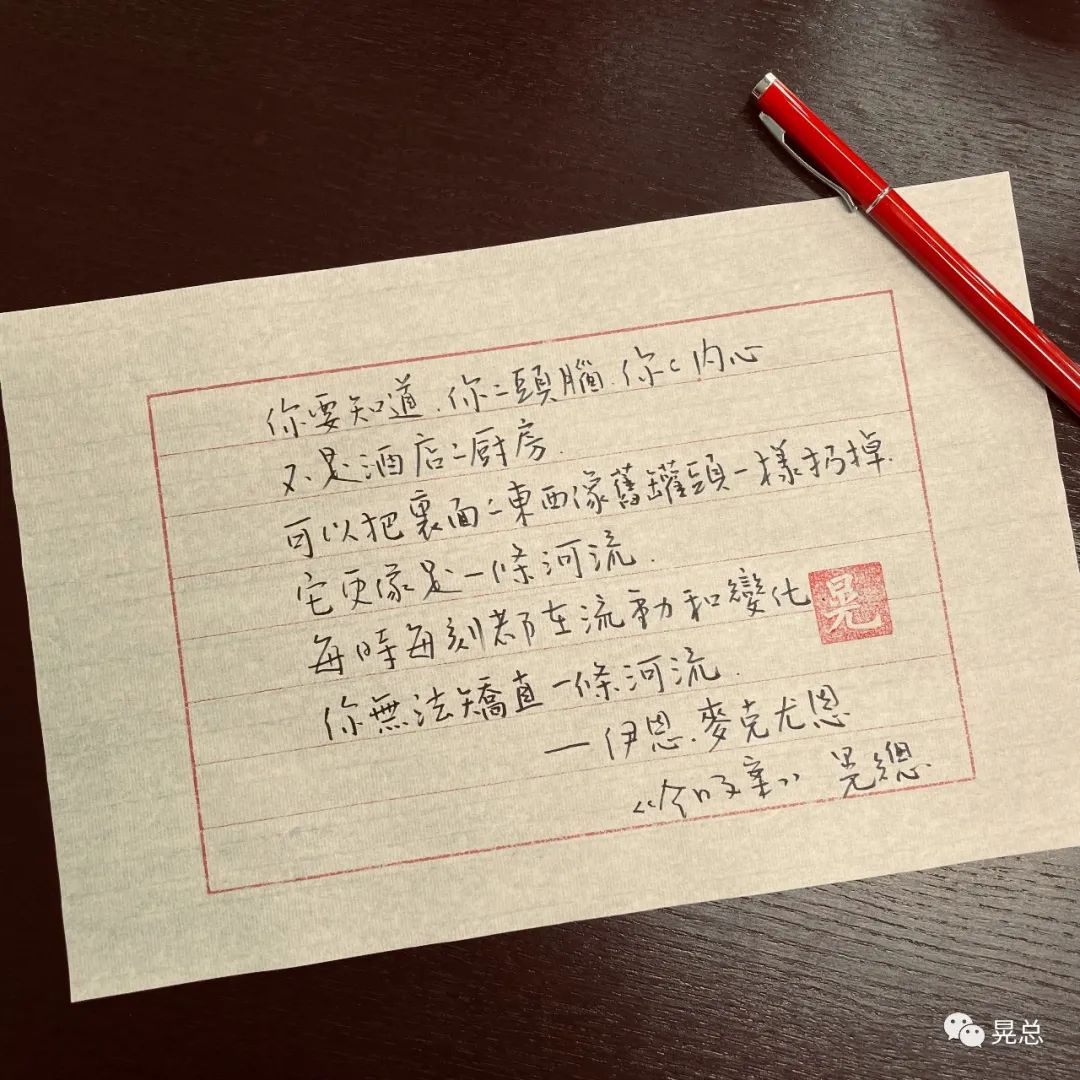 你要知道.你的頭腦.你的内心
不是酒店的厨房.
可以把裏面的東西像舊罐頭一樣扔掉.
它更像是一條河流.
每時每刻都在流動和變化.
你無法矯直一條河流.
晃
—伊恩.麥克尤恩
《今日文案》 晃總
晃总